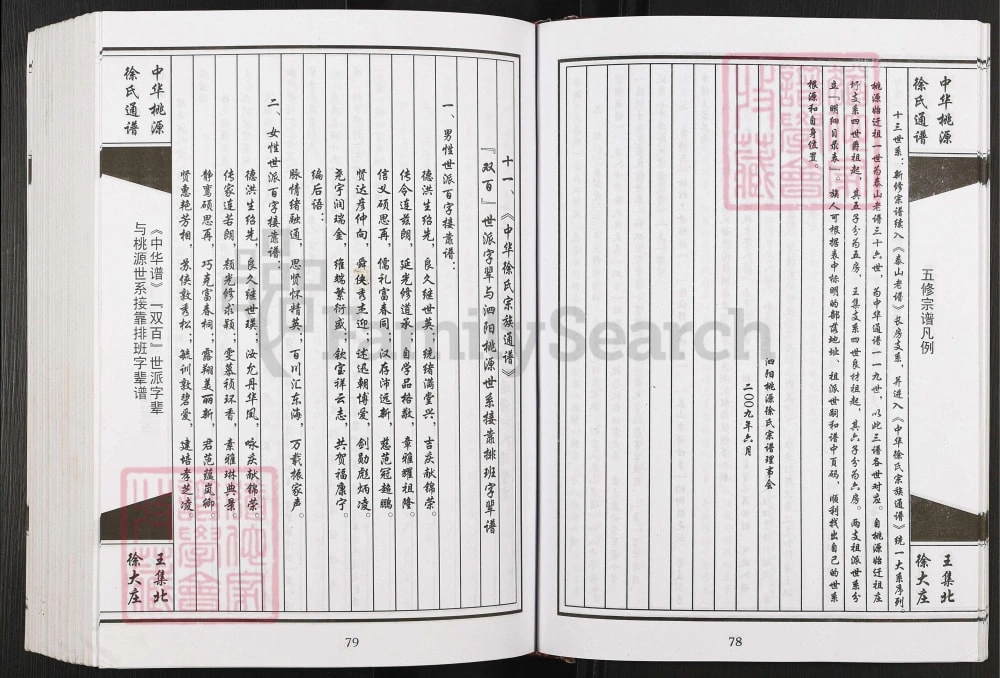 中华桃源
徐氏通谱
五修宗谱凡例
王集北
徐大庄
十三世系：新修宗谱续入《泰山老谱》长房支系，并进入《中华徐氏宗族通谱》统一大系序列。
桃源始迁祖一世为泰山老谱三十六世，为中华通谱一一九世，以此三谱各世对应。自桃源始迁祖庄
圩支系四世爵祖起，其五子分为五房，王集支系四世良材祖起，其六子分为六房。两支祖派世系分
立，明细目录表一。族人可根据表中标明的部落地址、祖派世嗣和谱中页码，顺利找出自己的世系
根源和自身位置。
泗阳桃源徐氏宗谱理事会
二〇〇九年六月
78
十一、《中华徐氏宗族通谱》
『双百』世派字辈与泗阳桃源世系接靠排班字辈谱
一、男性世派百字接靠谱：
德洪生绍先，良久继世英；统绪满堂兴，吉庆献锦荣。
传令连兹朗，延光修道承；自学品格敬，章雅耀祖隆。
信义硕思再，儒礼富春同；汉存沛远新，慈范冠超鹏。
贤达彦仲向，舜侠秀杰迎；述迅朝博爱，剑勋彪炳凌。
尧宇润瑞金，维端繁衍盛，钦宝祥云志，共贺福康宁。
编后语：
脉情绪融通，思贤怀精英；百川汇东海，万载振家声。
二、女性世派百字接靠谱：
德洪生绍先，良久继世瑛；汝允丹华凤，咏庆献锦荣。
传家连若朗，颜光修求颖；雯慕祯环香，素雅琳典景。
静鸾硕思再，巧克富春桐；露翔美丽新，君范蕴岚卿。
贤惠艳芳相，苏侠敦秀松；毓训敦碧爱，建培孝芝凌。
中华桃源
徐氏通谱
《中华谱》『双百』世派字辈
与桃源世系接靠排班字辈谱
王集北
徐大庄
79
FamilySearch